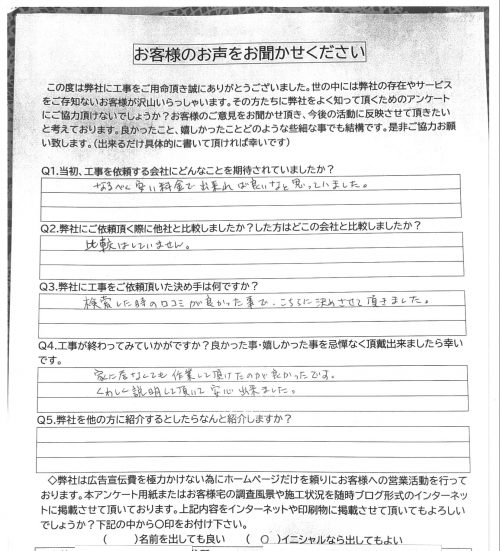 お客様のお声をお聞かせください
この度は弊社に工事をご用命頂き誠にありがとうございました。世の中には弊社の存在やサービス
をご存知ないお客様が沢山いらっしゃいます。その方たちに弊社をよく知って頂くためのアンケート
にご協力頂けないでしょうか?お客様のご意見をお聞かせ頂き、今後の活動に反映させて頂きたい
と考えております。良かったこと、嬉しかったことどのような些細な事でも結構です。是非ご協力お願
い致します。(出来るだけ具体的に書いて頂ければ幸いです)
Q1.当初、工事を依頼する会社にどんなことを期待されていましたか?
なるべく安い料金で出来れば良いなと思っていました。
Q2.弊社にご依頼頂く際に他社と比較しましたか?した方はどこの会社と比較しましたか?
比較はしていません。
Q3.弊社に工事をご依頼頂いた決め手は何ですか?
検索した時の口コミが良かった事で、こちらに決めさせて頂きました。
Q4.工事が終わってみていかがですか?良かった事・嬉しかった事を忌憚なく頂戴出来ましたら幸い
です。
家に居なくても作業して頂けたのが良かったです。
くわしく説明して頂いて安心出来ました。
Q5.弊社を他の方に紹介するとしたらなんと紹介しますか?
◇弊社は広告宣伝費を極力かけない為にホームページだけを頼りにお客様への営業活動を行って
おります。本アンケート用紙またはお客様宅の調査風景や施工状況を随時ブログ形式のインターネッ
トに掲載させて頂いております。上記内容をインターネットや印刷物に掲載させて頂いてもよろしい
でしょうか?下記の中から〇印をお付け下さい。
( )名前を出しても良い ( 〇 )イニシャルなら出してもよい